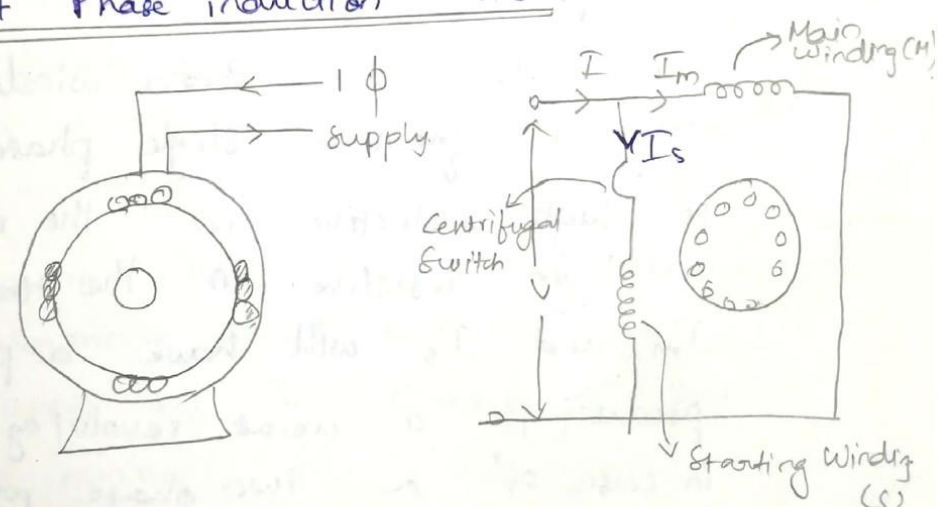 Phase induction
1 ϕ
Supply
Main
Winding (M)
I
Im
Is
Centrifugal
Switch
V
Starting Winding
(S)